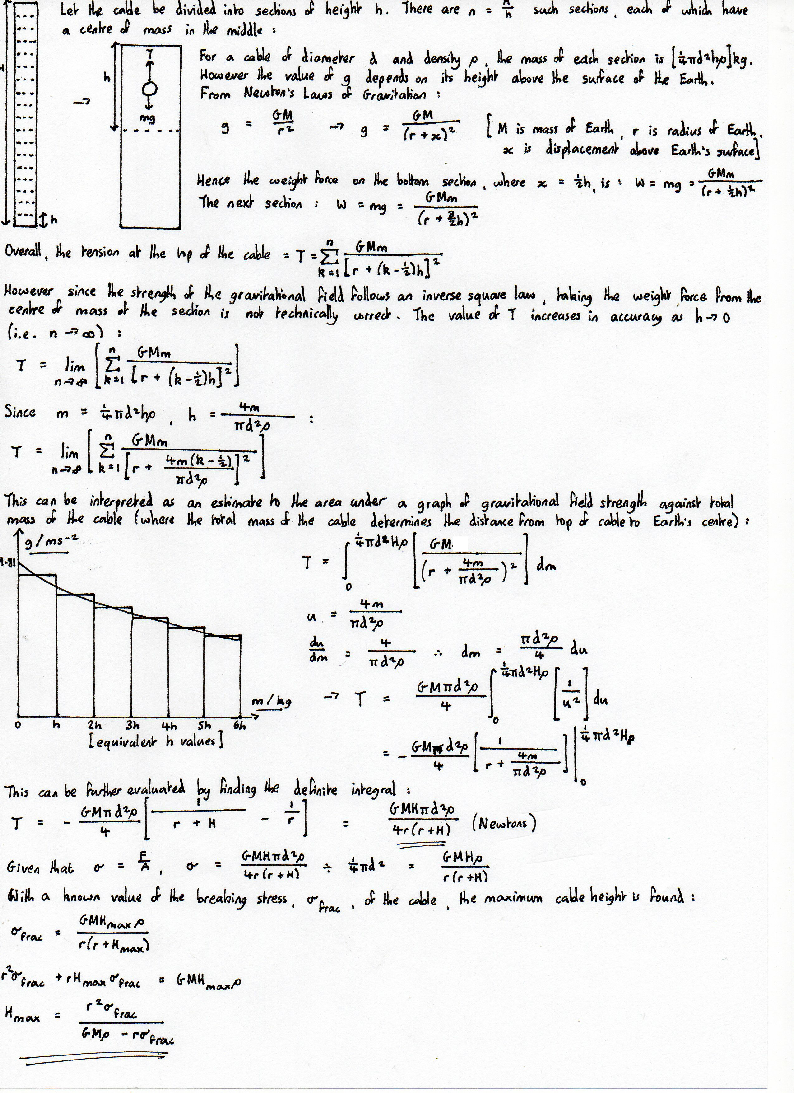 Let the cable be divided into sections of height h. There are n = H/h such sections, each of which have
a centre of mass in the middle :
For a cable of diameter d and density ρ, the mass of each section is [¼πd²hρ]kg.
However the value of g depends on its height above the surface of the Earth.
From Newton's Laws of Gravitation :
h T mg
→ g = GM/r² → g = GM/(r + x)² [M is mass of Earth, r is radius of Earth,
x is displacement above Earth's surface]
Hence the weight force on the bottom section, where x = ½h, is : W = mg = GMm/(r + ½h)²
The next section : W = mg = GMm/(r + 3/2h)²
h
Overall, the tension at the top of the cable = T = Σ_{k=1}^{n} GMm/[r + (k-½)h]²
However since the strength of the gravitational field follows an inverse square law, taking the weight force from the
centre of mass of the section is not technically correct. The value of T increases in accuracy as h→0
(i.e. n → ∞) :
T = lim_{n→∞} [Σ_{k=1}^{n} GMm/[r + (k-½)h]²]
Since m = ¼πd²hρ , h = 4m/πd²ρ :
T = lim_{n→∞} [Σ_{k=1}^{n} GMm/[r + 4m(k-½)/πd²ρ]²]
This can be interpreted as an estimate to the area under a graph of gravitational field strength against total
mass of the cable (where the total mass of the cable determines the distance from top of cable to Earth's centre) :
g/ms⁻²
9.81
m/kg
0 h 2h 3h 4h 5h 6h
[equivalent h values]
T = ∫_0^{¼πd²Hρ} [GM/(r + 4m/πd²ρ)²] dm
u = 4m/πd²ρ
du/dm = 4/πd²ρ ∴ dm = πd²ρ/4 du
→ T = GMπd²ρ/4 ∫_0^{¼πd²Hρ} [1/u²] du
= - GMπd²ρ/4 [1/(r + 4m/πd²ρ)] |_0^{¼πd²Hρ}
This can be further evaluated by finding the definite integral :
T = - GMπd²ρ/4 [1/(r + H) - 1/r] = GMHπd²ρ/4r(r+H) (Newtons)
Given that σ = F/A, σ = GMHπd²ρ/4r(r+H) ÷ ¼πd² = GMHρ/r(r+H)
With a known value of the breaking stress, σ_frac, of the cable, the maximum cable height is found :
σ_frac = GMH_maxρ/r(r + H_max)
r²σ_frac + rH_maxσ_frac = GMH_maxρ
H_max = r²σ_frac/(GMρ - rσ_frac)